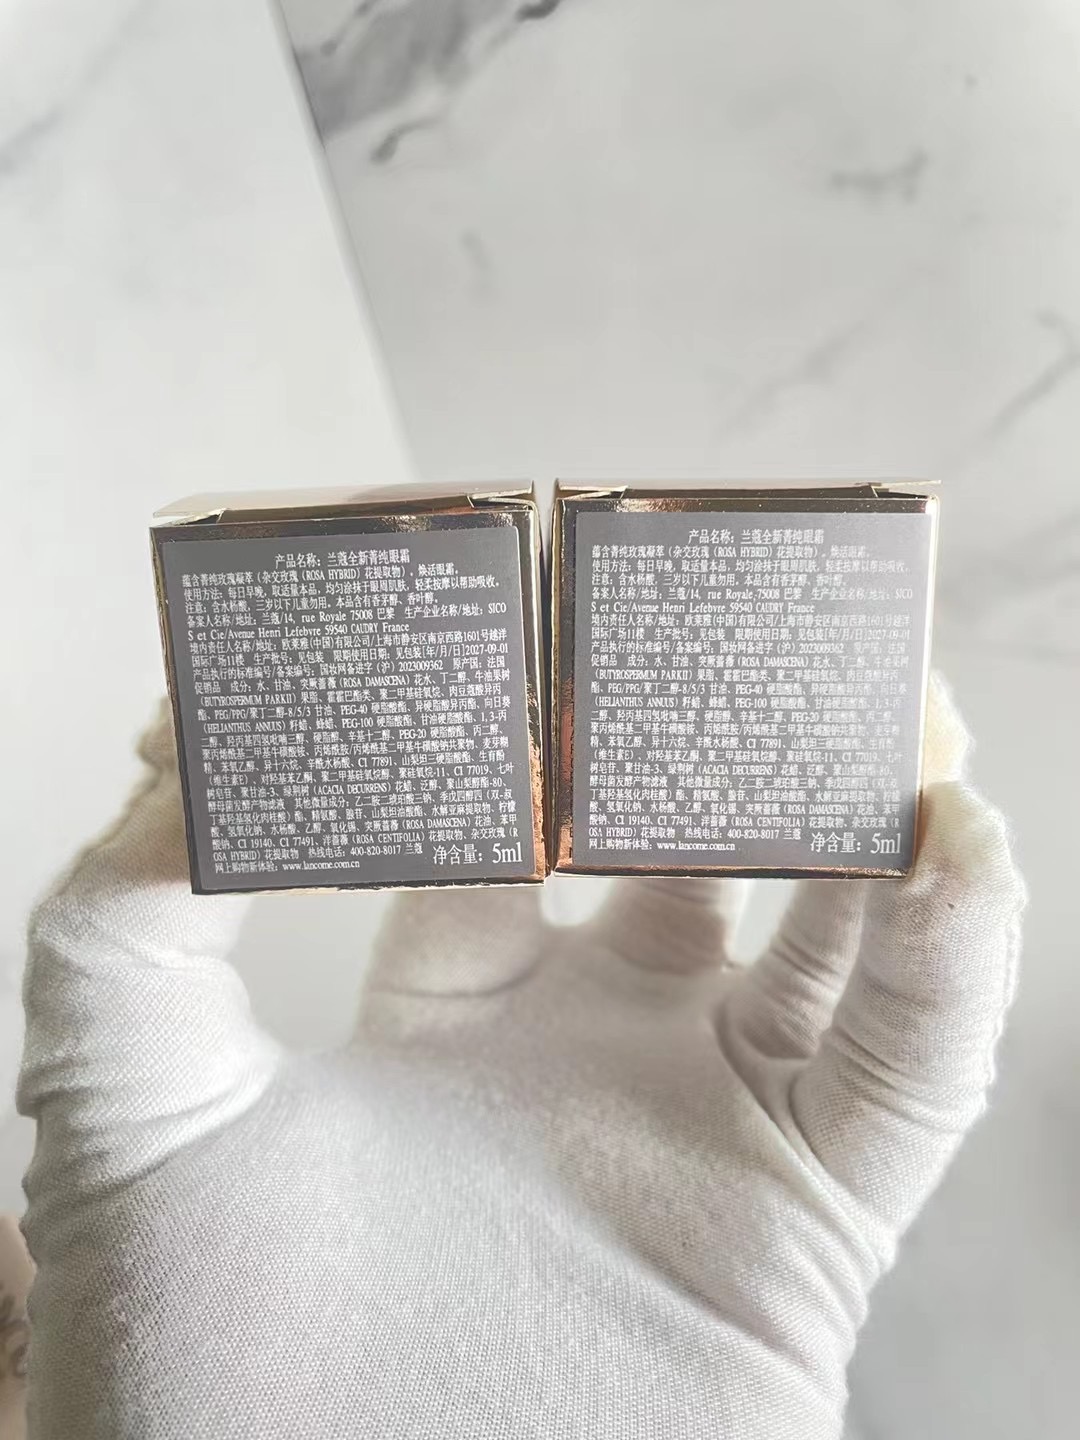 产品名称：兰蔻全新菁纯眼霜
蕴含菁纯玫瑰凝萃（杂交玫瑰（ROSA HYBRID）花提取物），焕活眼霜。
使用方法：每日早晚，取适量本品，均匀涂抹于眼周肌肤，轻柔按摩以帮助吸收。
注意：含水杨酸，三岁以下儿童勿用。本品含有香茅醇、香叶醇。
备案人名称/地址：兰蔻/14, rue Royale 75008 巴黎 生产企业名称/地址：SICO
S et Cie/Avenue Henri Lefebvre 59540 CAUDRY France
境内责任人名称/地址：欧莱雅(中国)有限公司/上海市静安区南京西路1601号越洋
国际广场11楼 生产批号：见包装 限期使用日期：见包装[年/月/日]2027-09-01
产品执行的标准编号/备案编号：国妆网备进字（沪）2023009362 原产国：法国
促销品 成分：水、甘油、突厥蔷薇（ROSA DAMASCENA）花水、丁二醇、牛油果树
（BUTYROSPERMUM PARKII）果脂、霍霍巴酯类、聚二甲基硅氧烷、肉豆蔻酸异丙
酯、PEG/PPG/聚丁二醇-8/5/3 甘油、PEG-40 硬脂酸酯、异硬脂酸异丙酯、向日葵
（HELIANTHUS ANNUUS）籽蜡、蜂蜡、PEG-100 硬脂酸酯、甘油硬脂酸酯、1, 3-丙
二醇、羟丙基四氢吡喃三醇、硬脂醇、辛基十二醇、PEG-20 硬脂酸酯、丙二醇、
聚丙烯酰基二甲基牛磺酸铵、丙烯酰胺/丙烯酰基二甲基牛磺酸钠共聚物、麦芽糊
精、苯氧乙醇、异十六烷、辛酰水杨酸、CI 77891、山梨坦三硬脂酸酯、生育酚
（维生素E）、对羟基苯乙酮、聚二甲基硅氧烷醇、聚硅氧烷-11、CI 77019、七叶
树皂苷、聚甘油-3、绿荆树（ACACIA DECURRENS）花蜡、泛醇、聚山梨醇酯-80、
酵母菌发酵产物滤液 其他微量成分：乙二胺二琥珀酸三钠、季戊四醇四（双-叔
丁基羟基氢化肉桂酸）酯、精氨酸、腺苷、山梨坦油酸酯、水解亚麻提取物、柠檬
酸、氢氧化钠、水杨酸、乙醇、氧化锡、突厥蔷薇（ROSA DAMASCENA）花油、苯甲
酸钠、CI 19140、CI 77491、洋蔷薇（ROSA CENTIFOLIA）花提取物、杂交玫瑰（R
OSA HYBRID）花提取物 热线电话：400-820-8017 兰蔻
网上购物新体验：www.lancome.com.cn
净含量：5ml
产品名称：兰蔻全新菁纯眼霜
蕴含菁纯玫瑰凝萃（杂交玫瑰（ROSA HYBRID）花提取物），焕活眼霜。
使用方法：每日早晚，取适量本品，均匀涂抹于眼周肌肤，轻柔按摩以帮助吸收。
注意：含水杨酸，三岁以下儿童勿用。本品含有香茅醇、香叶醇。
备案人名称/地址：兰蔻/14, rue Royale 75008 巴黎 生产企业名称/地址：SICO
S et Cie/Avenue Henri Lefebvre 59540 CAUDRY France
境内责任人名称/地址：欧莱雅(中国)有限公司/上海市静安区南京西路1601号越洋
国际广场11楼 生产批号：见包装 限期使用日期：见包装[年/月/日]2027-09-01
产品执行的标准编号/备案编号：国妆网备进字（沪）2023009362 原产国：法国
促销品 成分：水、甘油、突厥蔷薇（ROSA DAMASCENA）花水、丁二醇、牛油果树
（BUTYROSPERMUM PARKII）果脂、霍霍巴酯类、聚二甲基硅氧烷、肉豆蔻酸异丙
酯、PEG/PPG/聚丁二醇-8/5/3 甘油、PEG-40 硬脂酸酯、异硬脂酸异丙酯、向日葵
（HELIANTHUS ANNUUS）籽蜡、蜂蜡、PEG-100 硬脂酸酯、甘油硬脂酸酯、1, 3-丙
二醇、羟丙基四氢吡喃三醇、硬脂醇、辛基十二醇、PEG-20 硬脂酸酯、丙二醇、
聚丙烯酰基二甲基牛磺酸铵、丙烯酰胺/丙烯酰基二甲基牛磺酸钠共聚物、麦芽糊
精、苯氧乙醇、异十六烷、辛酰水杨酸、CI 77891、山梨坦三硬脂酸酯、生育酚
（维生素E）、对羟基苯乙酮、聚二甲基硅氧烷醇、聚硅氧烷-11、CI 77019、七叶
树皂苷、聚甘油-3、绿荆树（ACACIA DECURRENS）花蜡、泛醇、聚山梨醇酯-80、
酵母菌发酵产物滤液 其他微量成分：乙二胺二琥珀酸三钠、季戊四醇四（双-叔
丁基羟基氢化肉桂酸）酯、精氨酸、腺苷、山梨坦油酸酯、水解亚麻提取物、柠檬
酸、氢氧化钠、水杨酸、乙醇、氧化锡、突厥蔷薇（ROSA DAMASCENA）花油、苯甲
酸钠、CI 19140、CI 77491、洋蔷薇（ROSA CENTIFOLIA）花提取物、杂交玫瑰（R
OSA HYBRID）花提取物 热线电话：400-820-8017 兰蔻
网上购物新体验：www.lancome.com.cn
净含量：5ml